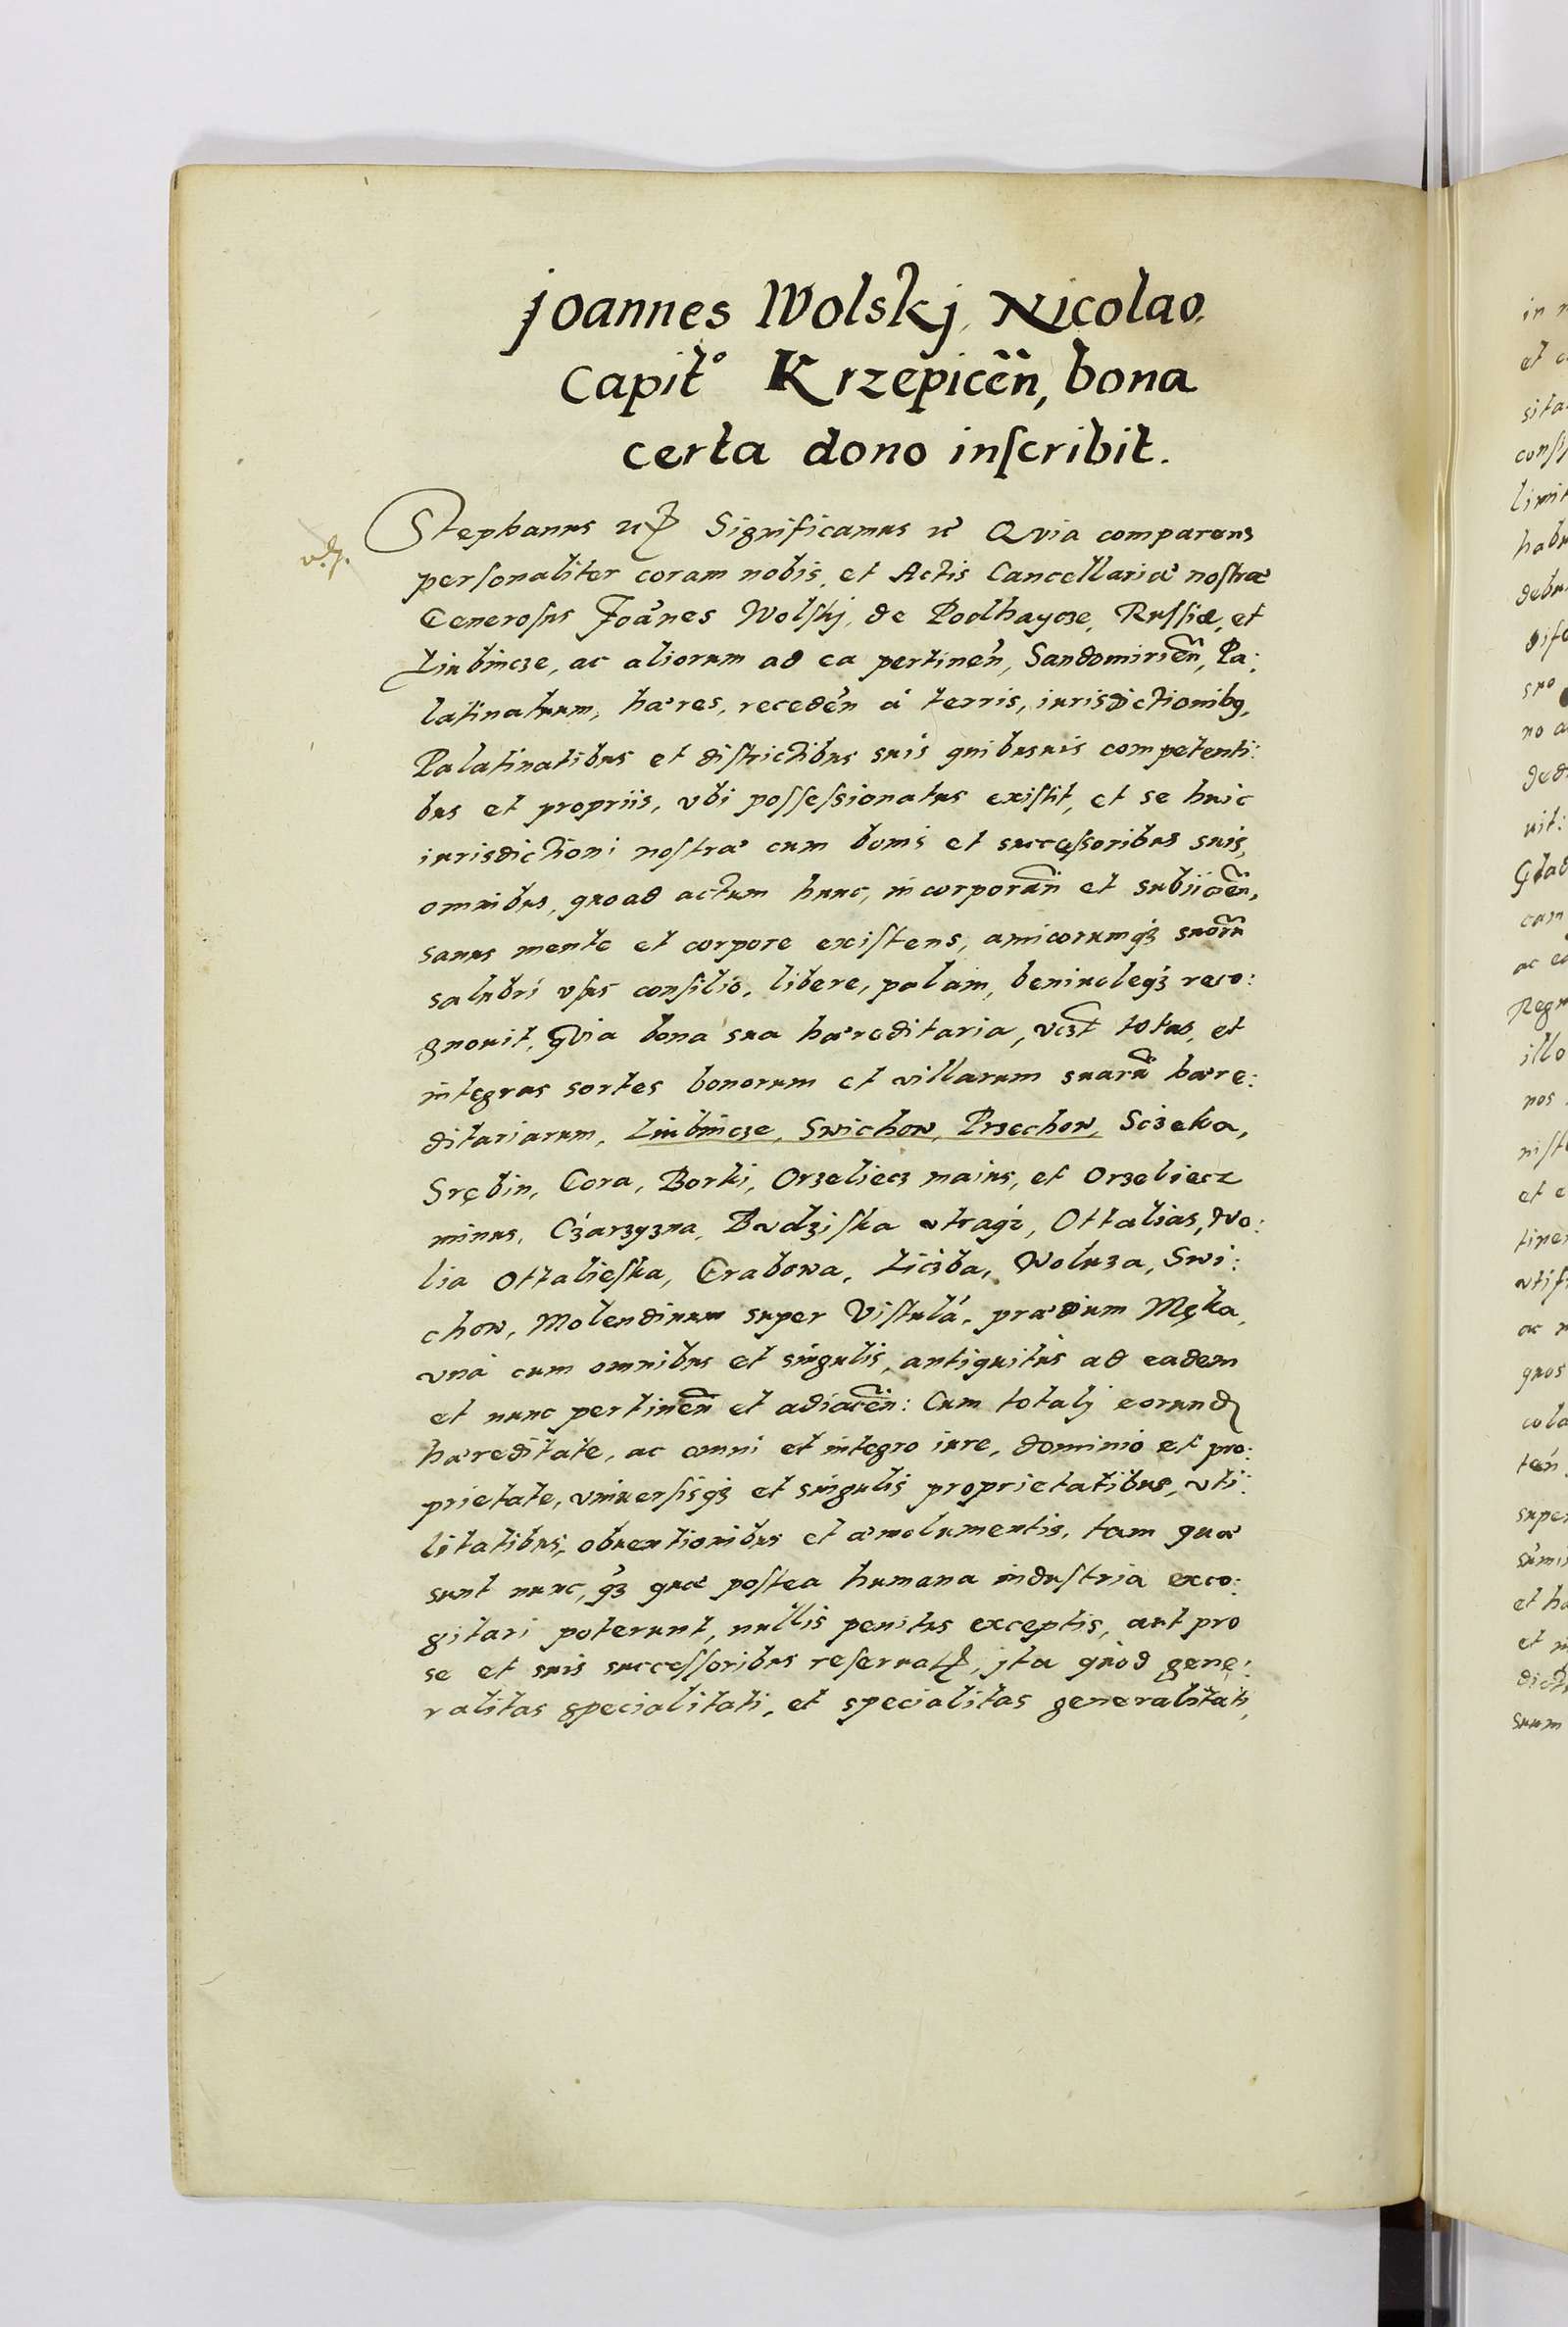 Joannes Wolskj, Nicolao,
Capit° Krzepicen̄, bona
certa dono inſcribit.
Stephanus Significamus Quia comparens
perſonaliter coram nobis, et Actis Cancellariæ noſtræ
Generoſus Joānes Wolſkj, de Podhaycze, Ruſsiæ, et
Liubincze, ac aliorum ad ea pertinēn, Sandomirien̄, Pa:
latinatuum, hæres, recedēn à terris, iurisdictionibꝫ,
Palatinatibus et diſtrictibus suis quibusuis competenti:
bus et propriis, vbi poſſeſsionatus exiſtit, et se huic
iurisdictioni noſtræ cum bonis et succeſsoribus suis,
omnibus, quoad actum hunc, incorporan̄ et subiicien̄,
sanus mente et corpore exiſtens, amicorumqꝫ suorū
salubri vſus conſilio, libere, palam, beniuoleqꝫ reco:
gnouit, Quia bona sua hæreditaria, vczt totas, et
integras sortes bonorum et villarum suarū hære:
ditariarum, Liubincze, Swichow, Przechow, Sczeka,
Srębin, Gora, Borki, Orzeliecz maius, et Orzeliecz
minus, Czarzyzna, Budziſka vtraqꝫ, Ottalias, Wo:
lia Ottalieſka, Grabowa, Liczba, Woluza, Swi:
chow, Molendinum super Viſtulā, prædium Męka,
vnà cum omnibus et singulis, antiquitùs ad eadem
et nunc pertinen̄ et adiacen̄: Cum totalj eorund
hæreditate, ac omni et integro iure, dominio et pro:
prietate, vniuerſisqꝫ et singulis proprietatibus, vti:
litatibus, obuentionibus et æmolumentis, tam quæ
sunt nunc, qꝫ quæ poſtea humana induſtria exco:
gitari poterunt, nullis penitus exceptis, aut pro
se et suis succeſſoribus reſeruatꝭ, jta quòd gene:
ralitas specialitati, et specialitas generalitati,